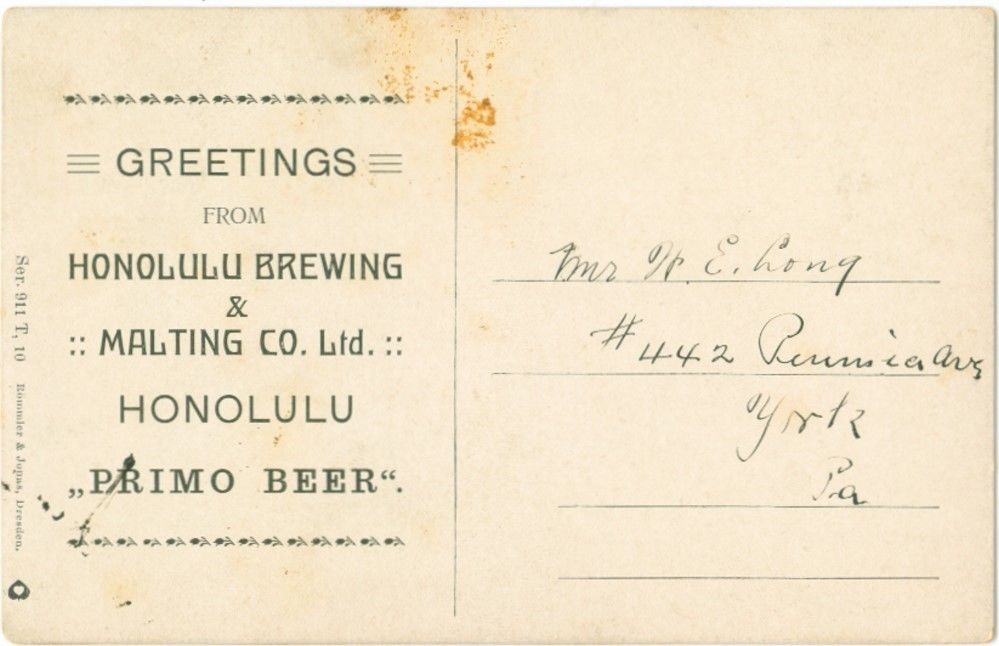 GREETINGS
FROM
HONOLULU BREWING
&
:: MALTING CO. Ltd. ::
HONOLULU
„PRIMO BEER“.
Ser. 911 T, 10 Römmler & Jonas, Dresden.
Mr W. E. Long
# 442 Pennsia Ave
York
Pa